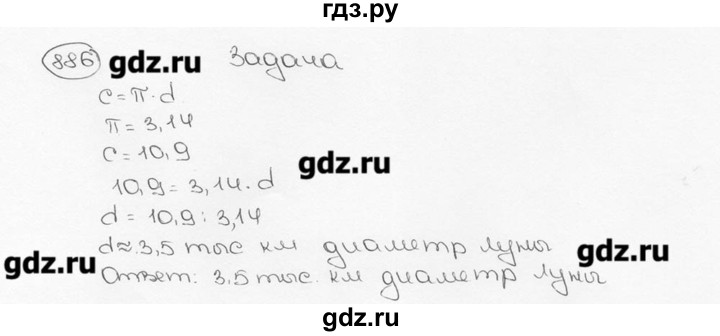 гдз.ру
886 gdz.ru Задача
c = π · d
π = 3,14
c = 10,9
gdz.ru
10,9 = 3,14 · d
d = 10,9 : 3,14
d ≈ 3,5 тыс км диаметр луны
gdz.ru
Ответ: 3,5 тыс. км диаметр луны
gdz.ru